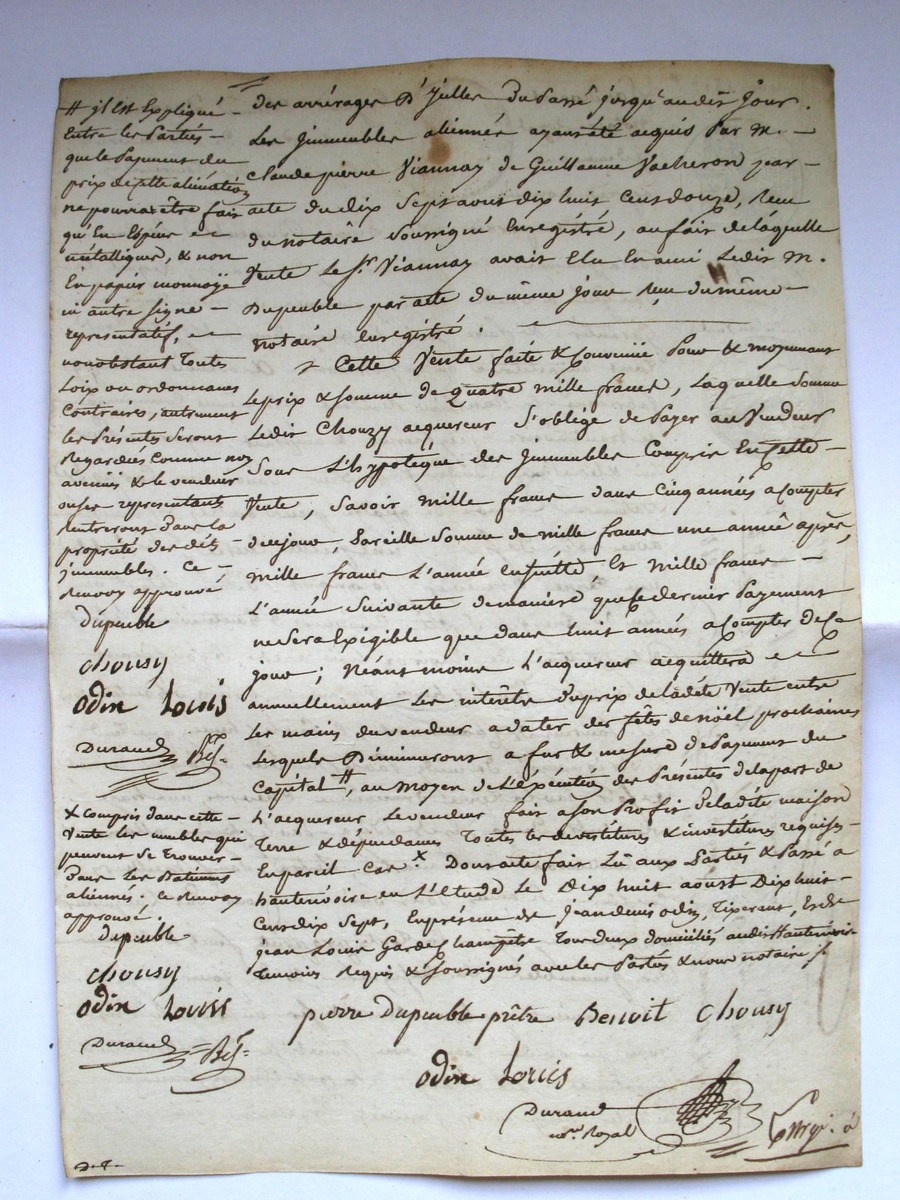 # il est Expliqué
Entre les Parties
que le Payement du
prix de cette aliénation
ne pourra être fait
qu'En Espèces
métalliques, & non
En papier monnoÿe
ni autre signe
representatif,
nonobstant toutes
Loix ou ordonnances
Contraires, autrement
les Présentes seront
Regardées comme non
avenues & le vendeur
ou ses representants
rentreront dans la
propriété desdits
immeubles. Ce
Renvoy approuvé
dupeuble
chousy
odin Louis
Durand
& Compris dans cette
Vente les meubles qui
peuvent se trouver
dans les Batimens
aliennés. Ce Renvoy
approuvé.
dupeuble
chousy
odin Louis
Durand
des arrérages D'Icelles Du Passé jusqu'audit Jour.
Les Immeubles aliennés ayant été acquis Par M.
Claude pierre Viannay de Guillaume Vacheron par
acte du dix Sept aout dix huit Cent douze, Reçu
du notaire Soussigné Enregistré, au fait de laquelle
Vente le Sr. Viannay avait Elu En ami Ledit M.
Dupeuble par acte du même jour Reçu du même
notaire Enregistré.
Cette Vente faite & Convenue Pour & moyennant
le prix & somme de quatre mille francs, Laquelle Somme
Ledit Chouzy acquereur S'oblige de Payer au Vendeur
Sous L'hypotèque des Immeubles Compris En cette
Vente, Savoir mille francs dans Cinq années a Compter
de ce jour, Pareille Somme de mille francs une année après,
mille francs L'année Ensuitte, Et mille francs
L'année Suivante de maniere que le dernier Payement
ne Sera Exigible que dans huit années a Compter de Ce
jour; Néantmoins L'acquereur acquittera
annuellement Les interêts du prix de ladite Vente entre
Les mains du vendeur a dater des fêtes de Nöel prochaines
Lesquels Diminueront a fur & mesure de Payement du
Capital #, au moyen de L'éxécution des Présentes de la part de
L'acquereur Le vendeur fait a Son Profit de ladite maison
Terre & dépendances Toutes les devestitures & investitures requises
En pareil Cas x. Dont acte fait Lu aux Parties & Passé a
hauterivoire en L'Etude Le Dix huit aoust Dix huit
Cent dix Sept, En présence de Jean denis odin, Tixerant, Et de
jean Louis Garde Champêtre Tous deux domiciliés audit Hauterivoire
Temoins Requis & Soussignés avec les Parties & nous notaire
pierre dupeuble prêtre Benoit Chousy
odin Louis
Durand
nre. Royal